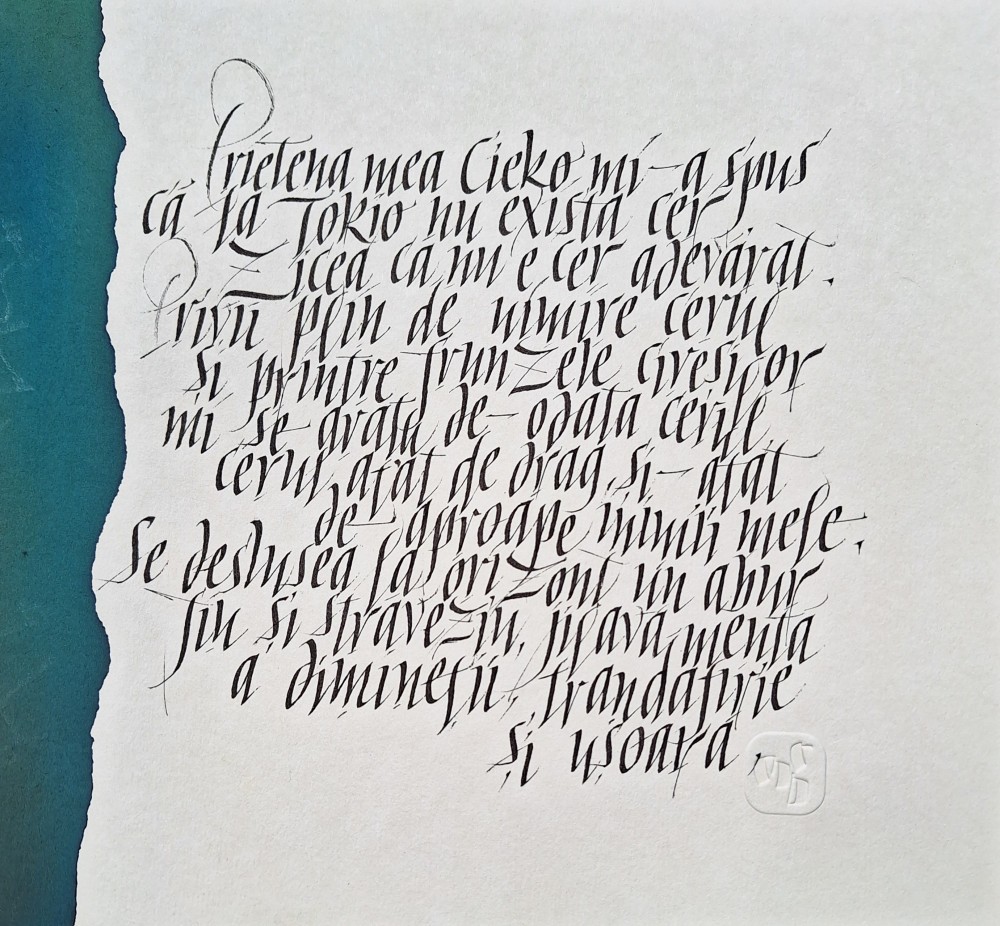 Prietena mea Cieko mi-a spus
că la Tokio nu există cer
Zicea că nu e cer adevărat.
Privii plin de uimire cerul
Și printre frunzele cireșilor
mi se arăta de-odată cerul
cerul atât de drag, și-atât
de-aproape inimii mele.
Se deslușea la orizont un abur
fin și străveziu, jilava, menta
a dimineții, trandafirie
și ușoară.